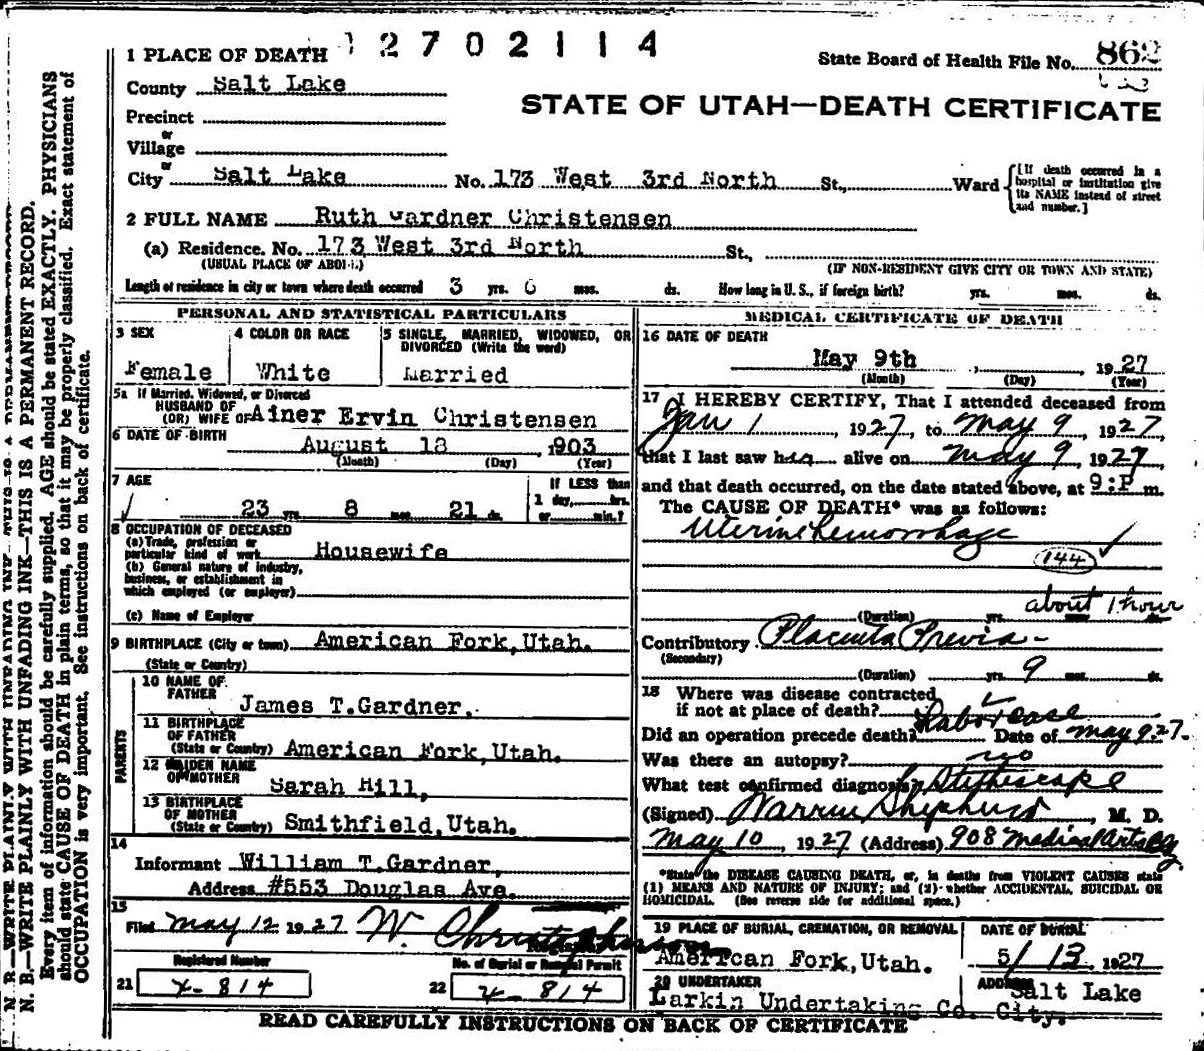 1 PLACE OF DEATH 12702114
State Board of Health File No. 862
County Salt Lake
STATE OF UTAH—DEATH CERTIFICATE
Precinct
or
Village
or
City Salt Lake No. 173 West 3rd North St., Ward
[If death occurred in a hospital or institution give its NAME instead of street and number.]
2 FULL NAME Ruth Gardner Christensen
(a) Residence. No. 173 West 3rd North St.,
(USUAL PLACE OF ABODE) (IF NON-RESIDENT GIVE CITY OR TOWN AND STATE)
Length of residence in city or town where death occurred 3 yrs. 6 mos. ds. How long in U. S., if foreign birth? yrs. mos. ds.
PERSONAL AND STATISTICAL PARTICULARS
3 SEX
Female
4 COLOR OR RACE
White
5 SINGLE, MARRIED, WIDOWED, OR
DIVORCED (Write the word)
Married
5a If Married, Widowed, or Divorced
HUSBAND OF
(OR) WIFE OF Ainer Ervin Christensen
6 DATE OF BIRTH
August 18, 1903
(Month) (Day) (Year)
7 AGE
23 yrs 8 mos 21 ds.
If LESS than
1 day, hrs.
or min.?
8 OCCUPATION OF DECEASED
(a) Trade, profession or
particular kind of work Housewife
(b) General nature of industry,
business, or establishment in
which employed (or employer)
(c) Name of Employer
9 BIRTHPLACE (City or town) American Fork, Utah.
(State or Country)
PARENTS
10 NAME OF
FATHER James T. Gardner.
11 BIRTHPLACE
OF FATHER
(State or Country) American Fork, Utah.
12 MAIDEN NAME
OF MOTHER Sarah Hill,
13 BIRTHPLACE
OF MOTHER
(State or Country) Smithfield, Utah.
14
Informant William T. Gardner,
Address #553 Douglas Ave.
15
Filed May 12 1927 W. Christopherson
Registered Number
21 x-814
No. of Burial or Removal Permit
22 x-814
MEDICAL CERTIFICATE OF DEATH
16 DATE OF DEATH
May 9th, 1927
(Month) (Day) (Year)
17 I HEREBY CERTIFY, That I attended deceased from
Jan 1 1927, to May 9, 1927,
that I last saw her alive on May 9, 1927
and that death occurred, on the date stated above, at 9:P m.
The CAUSE OF DEATH* was as follows:
Uterine hemorrhage
144
about 1 hour
(Duration) yrs. mos. ds.
Contributory Placenta Previa -
(Secondary)
(Duration) yrs. 9 mos. ds.
18 Where was disease contracted
if not at place of death?
Did an operation precede death? Labor case Date of May 9, 27.
Was there an autopsy? no
What test confirmed diagnosis? Stethescope
(Signed) Warren Shepherd, M. D.
May 10, 1927 (Address) 908 Medical Arts Bg
*State the DISEASE CAUSING DEATH, or, in deaths from VIOLENT CAUSES state
(1) MEANS AND NATURE OF INJURY; and (2) whether ACCIDENTAL, SUICIDAL OR
HOMICIDAL. (See reverse side for additional space.)
19 PLACE OF BURIAL, CREMATION, OR REMOVAL
American Fork, Utah.
DATE OF BURIAL
5/ 13, 1927
20 UNDERTAKER
Larkin Undertaking Co.
ADDRESS
Salt Lake
City.
READ CAREFULLY INSTRUCTIONS ON BACK OF CERTIFICATE
N. B.—WRITE PLAINLY WITH UNFADING INK—THIS IS A PERMANENT RECORD.
Every item of information should be carefully supplied. AGE should be stated EXACTLY. PHYSICIANS
should state CAUSE OF DEATH in plain terms, so that it may be properly classified. Exact statement of
OCCUPATION is very important. See instructions on back of certificate.